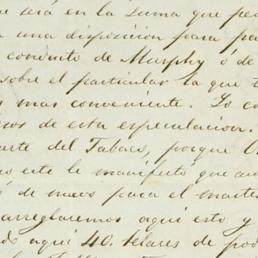 será en la suma que pe
una disposicion para pa
conduto de Murphy ó de
sobre el particular la que t
mas conveniente. Lo co
de esta especulacion.
arte del Tabaco, porque
este le manifestó que au
de nuevo para el martes
arreglaremos aqui esto y
aqui 40. telares de pod